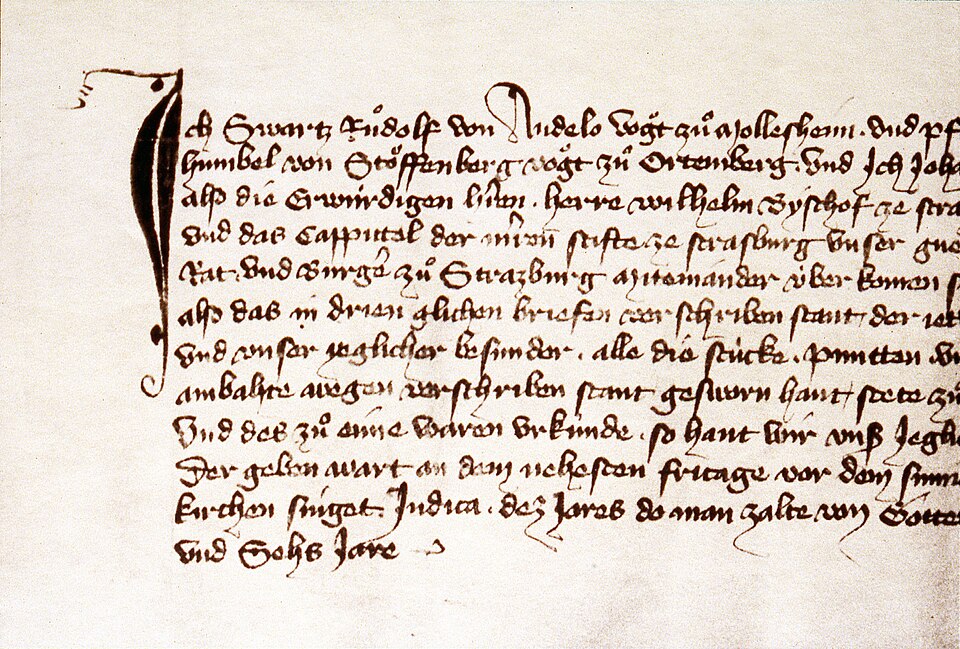 Ich Swartz Ruͦdolf von Andelo vogt zuͦ Mollesheim . vnd pf
humbel von Stoͤffenberg vogt zuͦ Ortemberg . vnd Ich Joh
also die Erwúrdigen hͤren . herre wilhelm Byschof ze stra
vnd das Cappittel der stifte ze strasburg vnser gne
Rat . vnd Burgͤ zuͦ Strazburg mitteinander v́ber komen s
also das in drien glichen briefen verschriben stant / der ie
vnd vnser ieglicher besunder . alle die stúcke . puncten . v
ambahte wegen verschriben stant gesworn hant / stete zuͦ
Vnd des zuͦ eime waren vrkúnde . so hant wir vnß Jegli
Der geben wart an dem nehesten fritage vor dem sunn
kirchen singet . Judica . dez Jares do man zalte von Gotte
vnd Sehs Jare